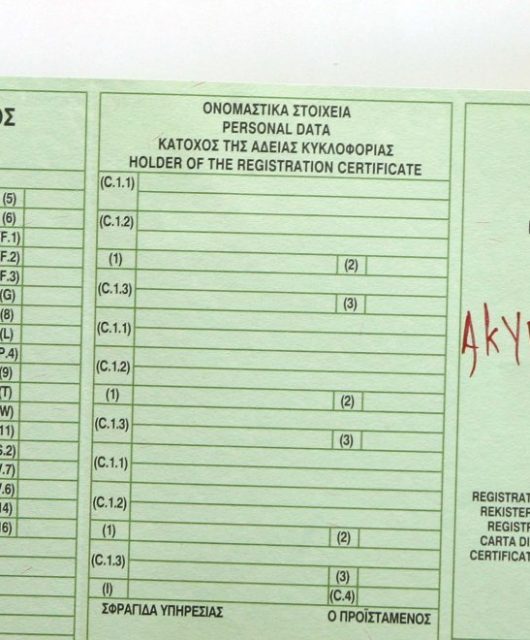 ΟΝΟΜΑΣΤΙΚΑ ΣΤΟΙΧΕΙΑ
PERSONAL DATA
ΚΑΤΟΧΟΣ ΤΗΣ ΑΔΕΙΑΣ ΚΥΚΛΟΦΟΡΙΑΣ
HOLDER OF THE REGISTRATION CERTIFICATE
(C.1.1)
(C.1.2)
(1) (2)
(C.1.3)
(3)
(C.1.1)
(C.1.2)
(1) (2)
(C.1.3)
(3)
(C.1.1)
(C.1.2)
(1) (2)
(C.1.3)
(3)
(I) (C.4)
ΣΦΡΑΓΙΔΑ ΥΠΗΡΕΣΙΑΣ Ο ΠΡΟΪΣΤΑΜΕΝΟΣ
(5)
(6)
F.1)
F.2)
F.3)
(G)
(8)
(L)
P.4)
(9)
(T)
W)
11)
S.2)
V.7)
V.6)
14)
16)
ΑΚΥ
REGISTRAT
REKISTER
REGISTR
CARTA DI
CERTIFICAT